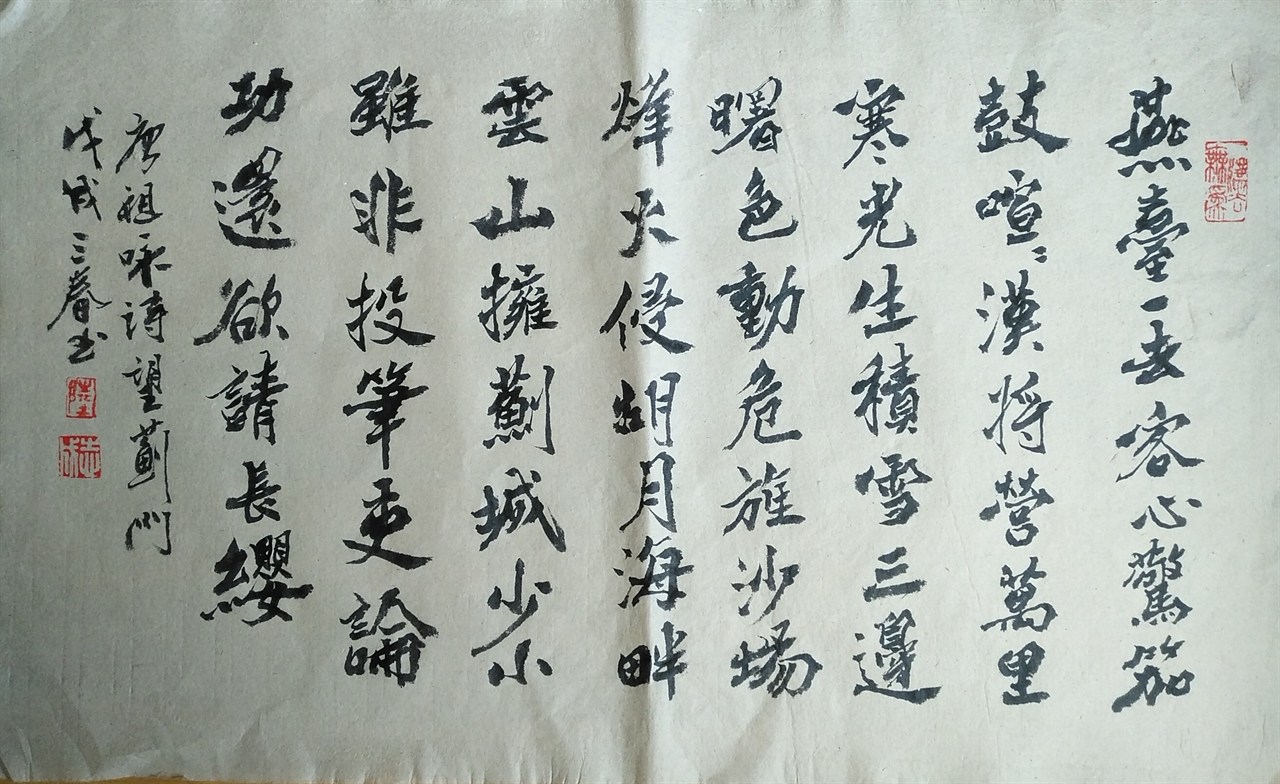 燕臺一去客心驚笳
鼓喧〻漢將營萬里
寒光生積雪三邊
曙色動危旌沙場
烽火侵胡月海畔
雲山擁薊城少小
雖非投筆吏論
功還欲請長纓
唐祖咏詩望薊门
戊戌三春书